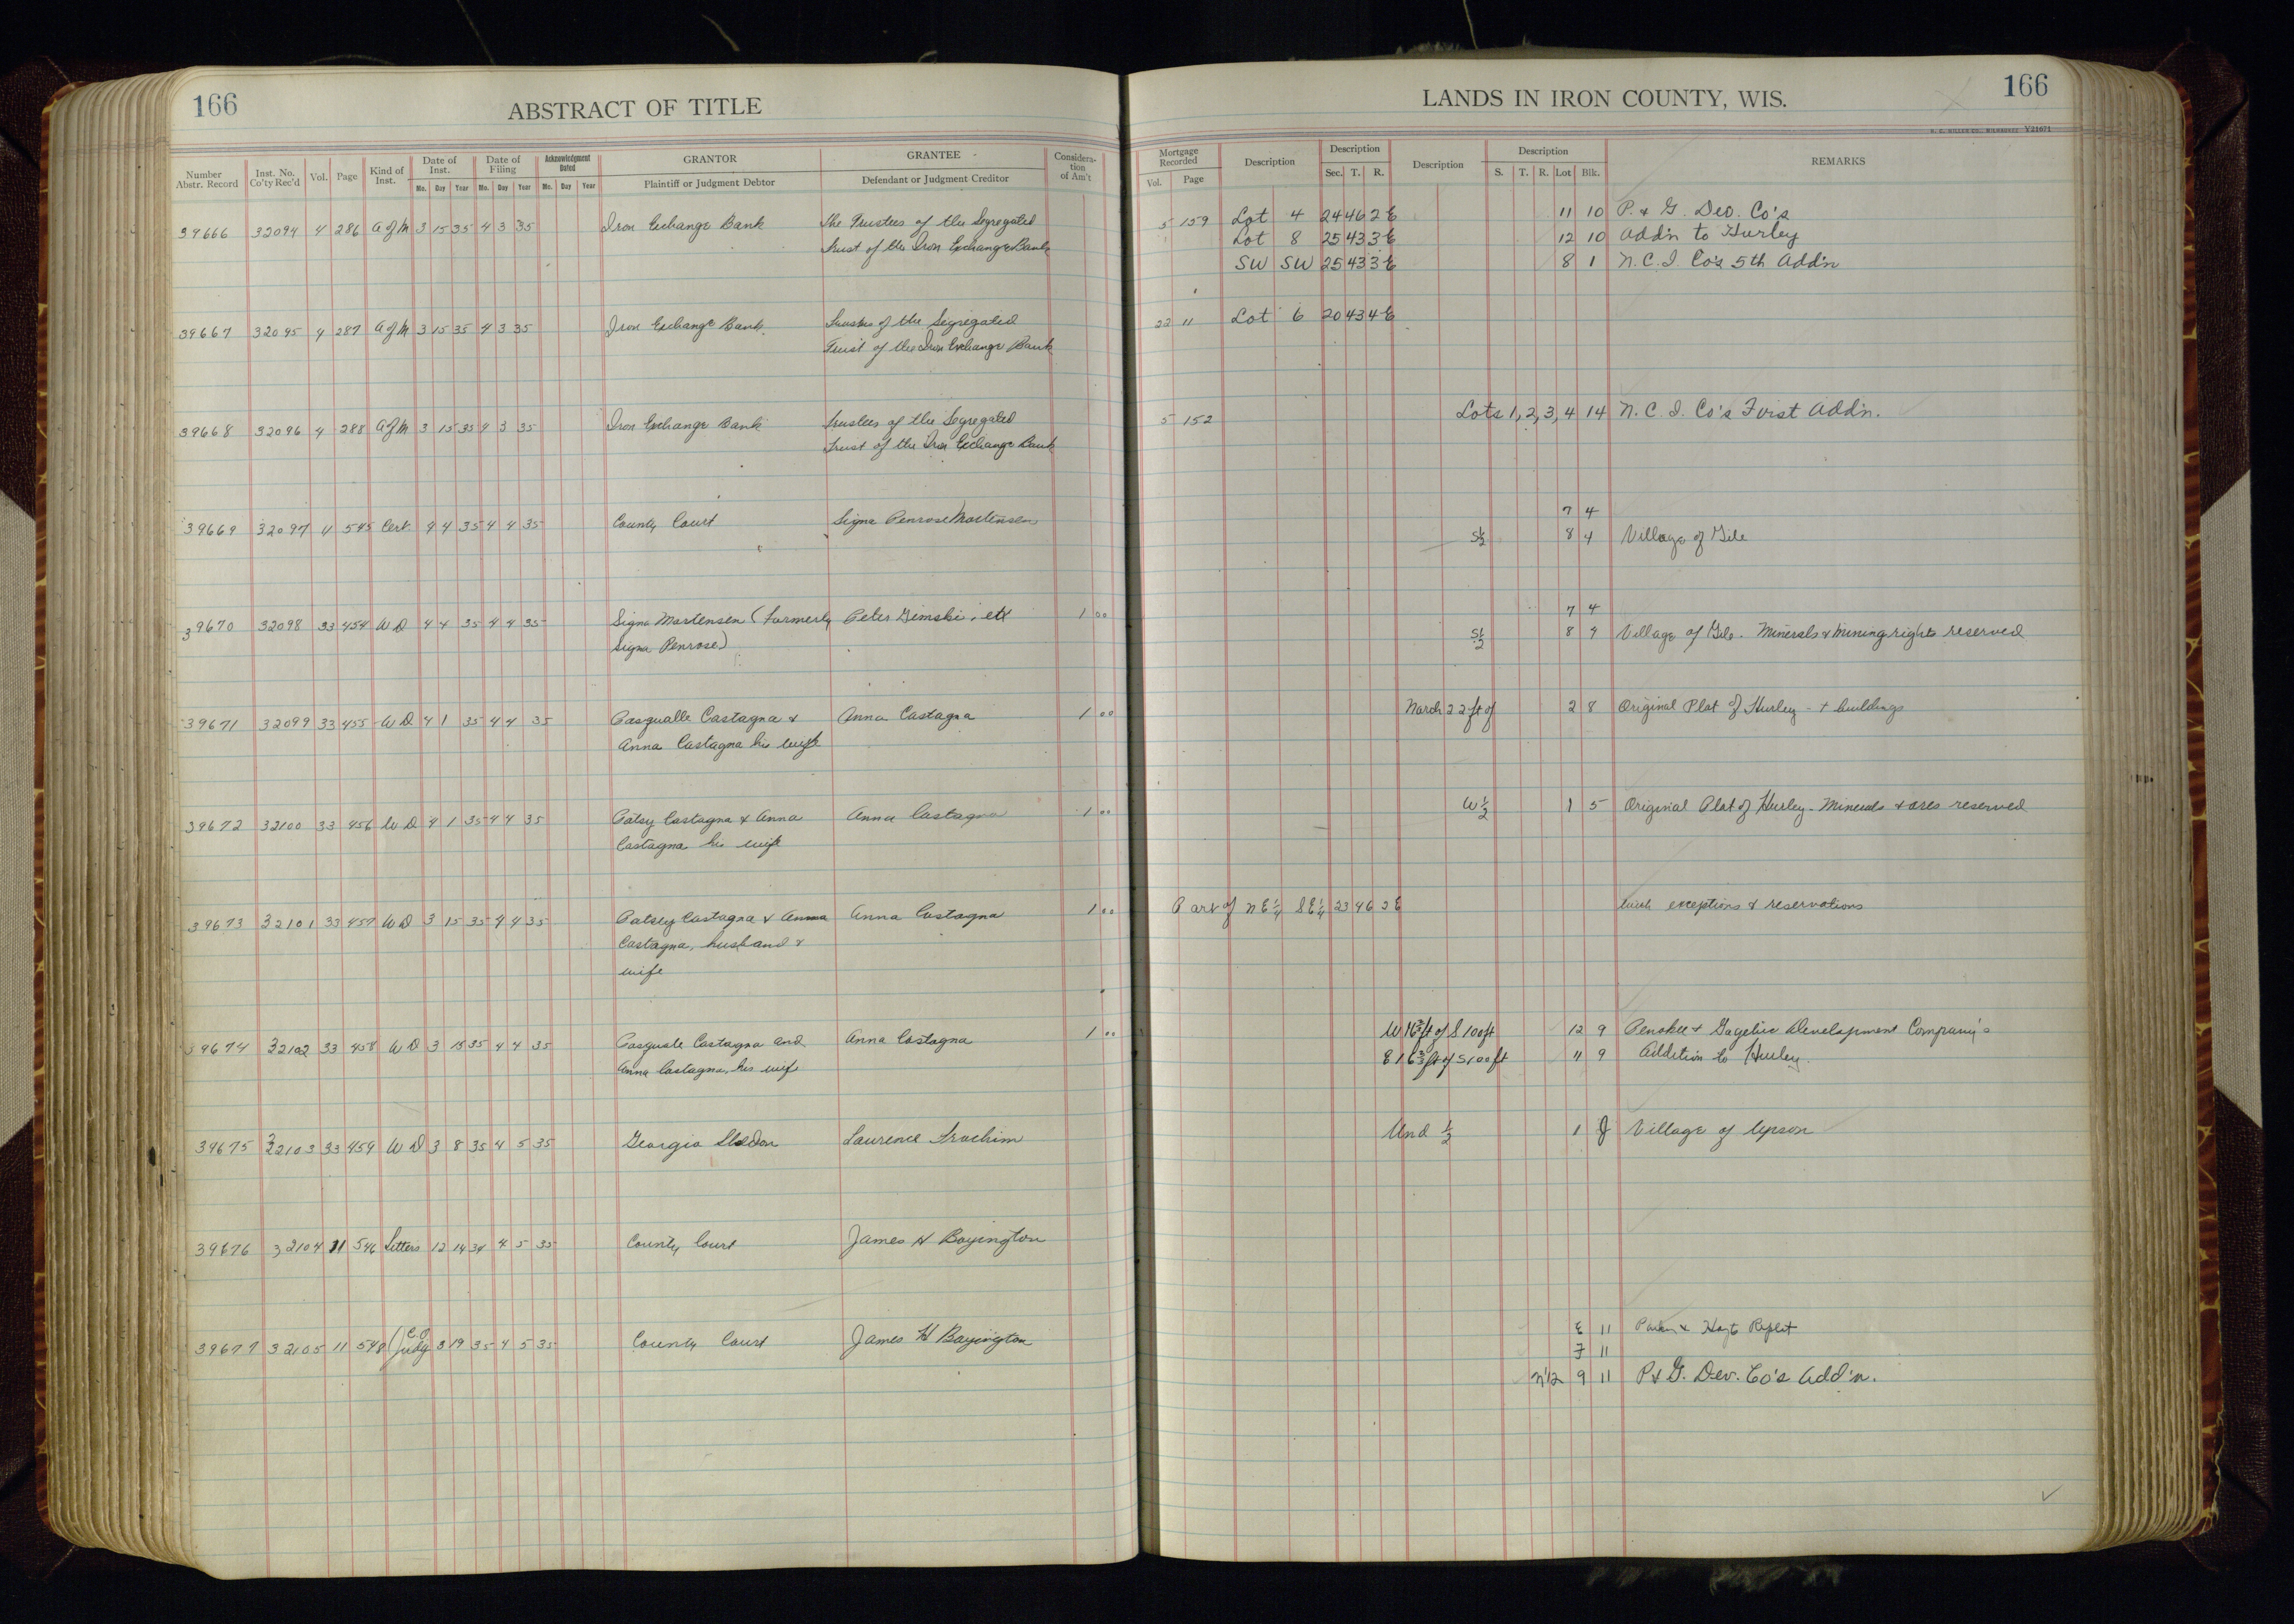 166
ABSTRACT OF TITLE
Number Abstr. Record
Inst. No. Co'ty Rec'd
Vol.
Page
Kind of Inst.
Date of Inst.
Mo. Day Year
Date of Filing
Mo. Day Year
Acknowledgment Dated
Mo. Day Year
GRANTOR
Plaintiff or Judgment Debtor
GRANTEE
Defendant or Judgment Creditor
Considera-tion of Am't
39666 32094 4 286 A of M 3 15 35 4 3 35 Iron Exchange Bank The Trustees of the Segregated
Trust of the Iron Exchange Bank
39667 32095 4 287 A of M 3 15 35 4 3 35 Iron Exchange Bank Trustees of the Segregated
Trust of the Iron Exchange Bank
39668 32096 4 288 A of M 3 15 35 4 3 35 Iron Exchange Bank Trustees of the Segregated
Trust of the Iron Exchange Bank
39669 32097 11 545 Cert 4 4 35 4 4 35 County Court Signa Penrose Mortensen
39670 32098 33 454 W D 4 4 35 4 4 35 Signa Mortensen (Formerly Peter Gimski, etx 1 00
Signa Penrose)
39671 32099 33 455 W D 4 1 35 4 4 35 Pasqualle Castagna & Anna Castagna 1 00
Anna Castagna his wife
39672 32100 33 456 W D 4 1 35 4 4 35 Patsy Castagna & Anna Anna Castagna 1 00
Castagna his wife
39673 32101 33 457 W D 3 15 35 4 4 35 Patsey Castagna & Anna Anna Castagna 1 00
Castagna, husband &
wife
39674 32102 33 458 W D 3 15 35 4 4 35 Pasquale Castagna and Anna Castagna 1 00
Anna Castagna, his wife
39675 32103 33 459 W D 3 8 35 4 5 35 Georgia Sheldon Laurence Trochim
39676 32104 11 546 Letters 12 14 34 4 5 35 County Court James H Boyington
39677 32105 11 548 (C.P. Judg 3 19 35 4 5 35 County Court James H Boyington
166
LANDS IN IRON COUNTY, WIS.
H. C. MILLER CO., MILWAUKEE Y21671
Mortgage Recorded
Vol. Page
Description
Description
Sec. T. R.
Description
Description
S. T. R. Lot Blk.
REMARKS
5 159 Lot 4 24 46 2 E 11 10 P. & G. Dev. Co's
Lot 8 25 43 3 E 12 10 Add'n to Hurley
SW SW 25 43 3 E 8 1 N.C.I. Co's 5th Add'n
22 11 Lot 6 20 43 4 E
5 152 Lots 1, 2, 3, 4 14 N. C. I. Co's First Add'n.
7 4
S½ 8 4 Village of Gile
7 4
S½ 8 4 Village of Gile. Minerals & mining rights reserved
North 22 ft of 2 8 Original Plat of Hurley - + buildings
W½ 1 5 Original Plat of Hurley - Minerals & ores reserved
Part of NE¼ SE¼ 23 46 2 E with exceptions & reservations
W 16⅔ ft of S 100 ft 12 9 Penokee & Gogebic Development Company's
E 16⅔ ft of S 100 ft 11 9 Addition to Hurley.
Und ½ 1 J Village of Upson
E 11 Hoyts Replat
F 11
N 1/2 9 11 P & G. Dev. Co's Add'n.